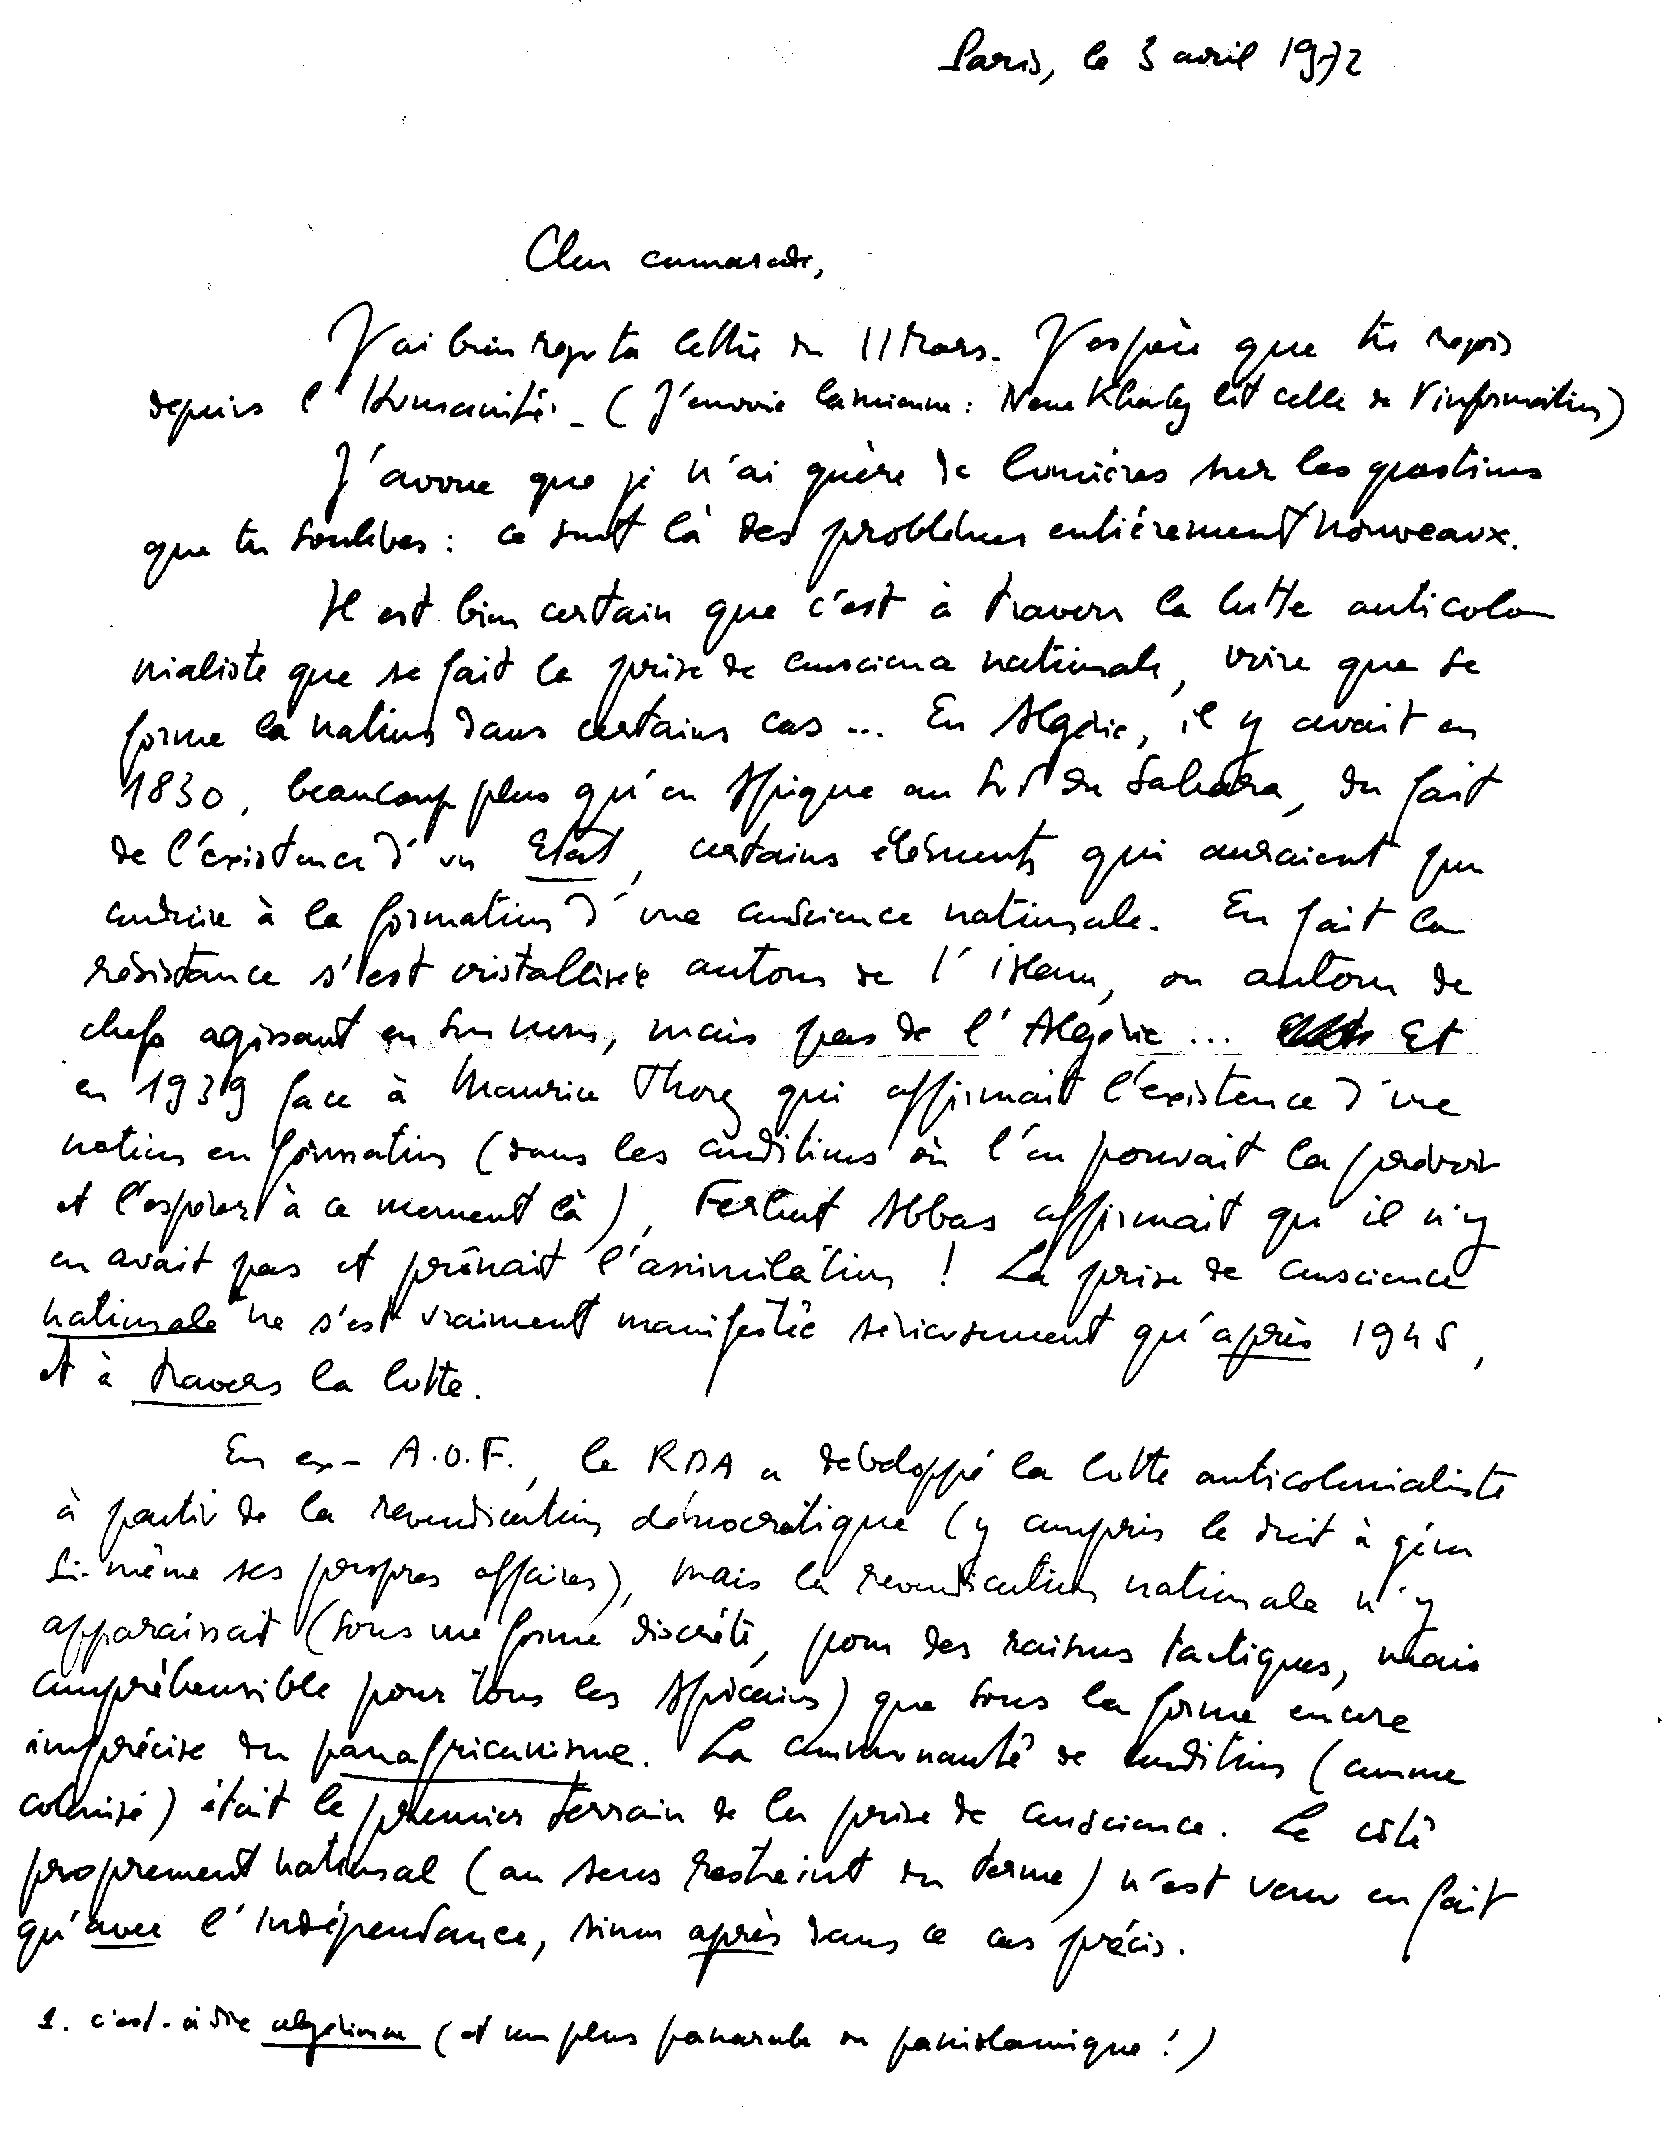 Paris, le 3 avril 1972
Cher camarade,
J'ai bien reçu ta lettre du 11 Mars. J'espère que tu reçois
depuis l'Humanité. (J'envoie la mienne : Nene Khaly lit celle de l'information)
J'avoue que je n'ai guère de lumières sur les questions
que tu soulèves : ce sont là des problèmes entièrement nouveaux.
Il est bien certain que c'est à travers la lutte anticolo
nialiste que se fait la prise de conscience nationale, voire que se
forme la nation dans certains cas ... En Algérie, il y avait en
1830, beaucoup plus qu'en Afrique au Sud du Sahara, du fait
de l'existence d'un Etat, certains éléments qui auraient pu
conduire à la formation d'une conscience nationale. En fait la
résistance s'est cristallisée autour de l'islam, ou autour de
chefs agissant en son nom, mais pas de l'Algérie ... Et
en 1939 face à Maurice Thorez qui affirmait l'existence d'une
nation en formation (dans les conditions où l'on pouvait la prévoir
et l'espérer à ce moment là), Ferhat Abbas affirmait qu'il n'y
en avait pas et prônait l'assimilation ! La prise de conscience
nationale ne s'est vraiment manifestée sérieusement qu'après 1945,
et à travers la lutte.
En ex-A.O.F., le RDA a développé la lutte anticolonialiste
à partir de la revendication démocratique (y compris le droit à gérer
soi-même ses propres affaires), mais la revendication nationale n'y
apparaissait (sous une forme discrète, pour des raisons tactiques, mais
compréhensible pour tous les Africains) que sous la forme encore
imprécise du panafricanisme. La communauté de condition (comme
colonisé) était le premier terrain de la prise de conscience. Le côté
proprement national (au sens restreint du terme) n'est venu en fait
qu'avec l'indépendance, sinon après dans ce cas précis.
1. c'est-à-dire algérienne (et non plus panarabe ou panislamique !)